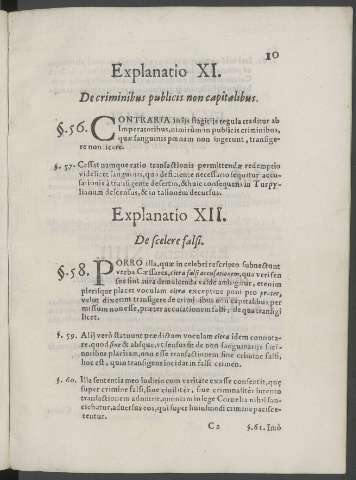 10
Explanatio XI.
De criminibus publicis non capitalibus.
§. 56. CONTRARIA in his flagitiis regula traditur ab
Imperatoribus, nimirùm in publicis criminibus,
quæ sanguinis pœnam non ingerunt, transige-
re non licere.
§. 57. Cessat namque ratio transactionis permittendæ redemptio
videlicet sanguinis, qua deficiente necessariò sequitur accu-
sationis à transigente desertio, & huic consequens in Turpyl-
lianum descensus, & in calioneм
Explanatio XII.
De scelere falsi.
§. 58. PORRO illa, quæ in celebri rescripto subnectunt
verba Cæsares, citra falsi accusationem, qua veri sen-
sus sint mirâ
plerisque placet voculam citra exceptivè poni pro præter,
velut dixerint transigere de criminibus non capitalibus per-
missum non esse, præter accusationem falsi, de qua transigi
licet.
§. 59. Alij verò statuunt prædictam voculam citra idem connota-
re, quod sine & absque, vt sensus sit de non sanguinariis faci-
noribus placitam, non esse transactionem sine crimine falsi,
hoc est, quin transigens incidat in falsi crimen.
§. 60. Illa sententia meo iudicio cum veritate ex asse consentit, quæ
super crimine falsi, siue ciuiliter, siue criminaliter intento
transactionem admittit, quoniam in lege Cornelia nihil san-
citur, aduersus eos, qui super huiusmodi crimine pacisce-
rentur.
C 2 §. 61. Imò